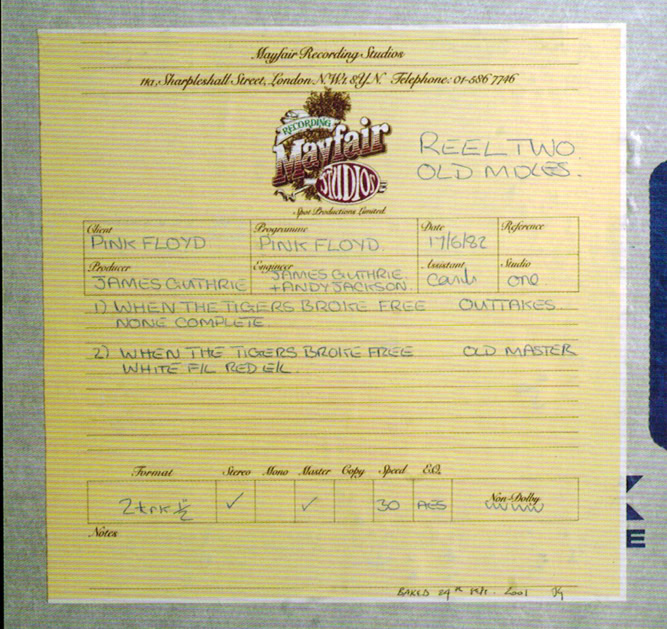 Mayfair Recording Studios
11a, Sharpleshall Street, London N.W.1. 8Y.N. Telephone: 01-586 7746
RECORDING
Mayfair
STUDIOS
Spot Productions Limited
REEL TWO.
OLD MIXES.
Client Programme Date Reference
PINK FLOYD PINK FLOYD. 17/6/82
Producer Engineer Assistant Studio
JAMES GUTHRIE JAMES GUTHRIE + ANDY JACKSON one
1) WHEN THE TIGERS BROKE FREE OUTTAKES
NONE COMPLETE
2) WHEN THE TIGERS BROKE FREE OLD MASTER
WHITE F/L RED E/L.
Format Stereo Mono Master Copy Speed E.Q.
2trk ½ ✓ ✓ 30 AES Non-Dolby
Notes
BAKED 24th 2001
E